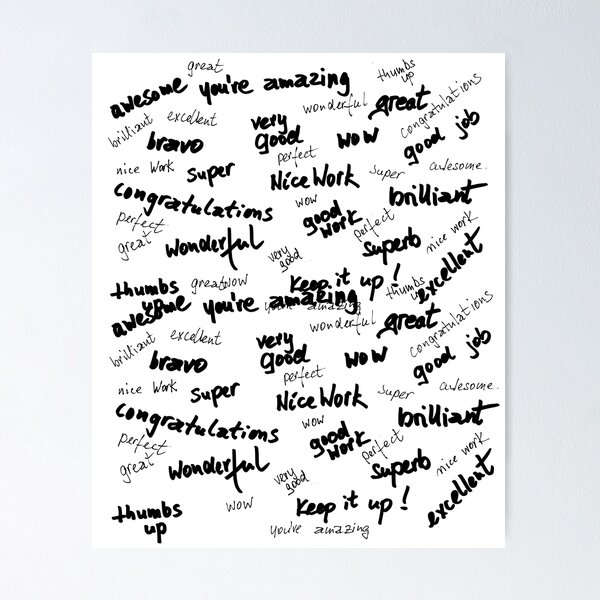 great
awesome you're amazing
thumbs
up
wonderful great congratulations
brilliant excellent
very
good
bravo wow good job
perfect
nice work super Nice Work super awesome.
congratulations wow brilliant
perfect good
work perfect
great wonderful superb nice work
very
good
excellent
thumbs
up
great wow Keep it up! thumbs
up
awesome you're amazing
you're amazing
wonderful great congratulations
brilliant excellent
very
good
bravo wow good job
perfect
nice work super Nice Work super awesome.
congratulations wow brilliant
perfect good
work perfect
great wonderful superb nice work
very
good
excellent
thumbs
up
wow Keep it up!
you're amazing